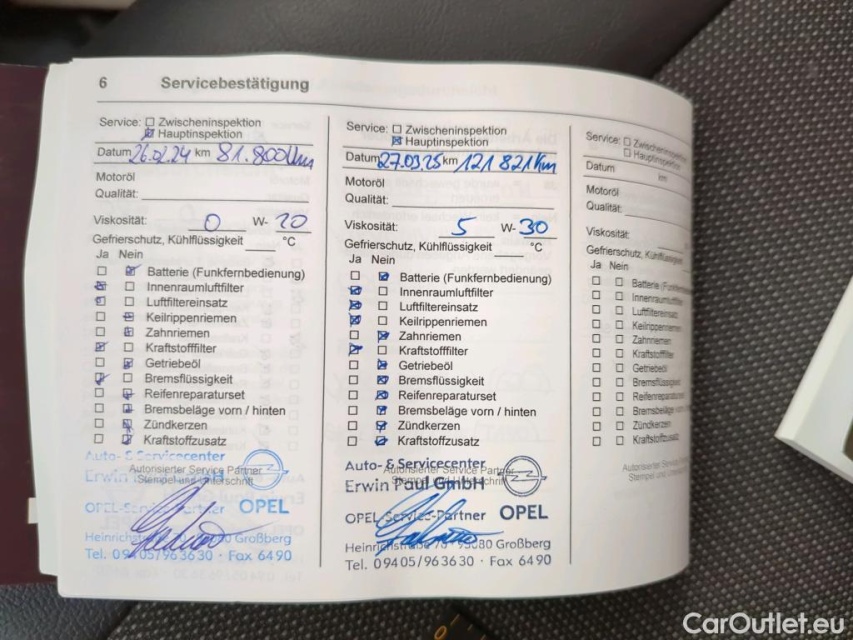 6 Servicebestätigung
Service: Zwischeninspektion
Hauptinspektion
Datum 26.02.24 km 81.800 Km
Motoröl
Qualität:
Viskosität: 0 W- 20
Gefrierschutz, Kühlflüssigkeit °C
Ja Nein
Batterie (Funkfernbedienung)
Innenraumluftfilter
Luftfiltereinsatz
Keilrippenriemen
Zahnriemen
Kraftstofffilter
Getriebeöl
Bremsflüssigkeit
Reifenreparaturset
Bremsbeläge vorn / hinten
Zündkerzen
Kraftstoffzusatz
Auto- & Servicecenter
Autorisierter Service Partner
Erwin
OPEL-Service-Partner OPEL
Großberg
Tel. 09405/963630 · Fax 6490
Service: Zwischeninspektion
Hauptinspektion
Datum 27.03.25 km 121 821 Km
Motoröl
Qualität:
Viskosität: 5 W- 30
Gefrierschutz, Kühlflüssigkeit °C
Ja Nein
Batterie (Funkfernbedienung)
Innenraumluftfilter
Luftfiltereinsatz
Keilrippenriemen
Zahnriemen
Kraftstofffilter
Getriebeöl
Bremsflüssigkeit
Reifenreparaturset
Bremsbeläge vorn / hinten
Zündkerzen
Kraftstoffzusatz
Auto- & Servicecenter
Autorisierter Service Partner
Erwin Paul GmbH
OPEL-Service-Partner OPEL
93080 Großberg
Tel. 09405/963630 · Fax 6490
Service: Zwischeninspektion
Hauptinspektion
Datum km
Motoröl
Qualität:
Viskosität:
Gefrierschutz, Kühlflüssigkeit
Ja Nein
Batterie (Funkfernbed
Innenraumluftfilter
Luftfiltereinsatz
Keilrippenriemen
Zahnriemen
Kraftstofffilter
Getriebeöl
Bremsflüssigkeit
Reifenreparaturset
Bremsbeläge vorn
Zündkerzen
Kraftstoffzusatz
Autorisierter Service
Stempel und
CarOutlet.eu